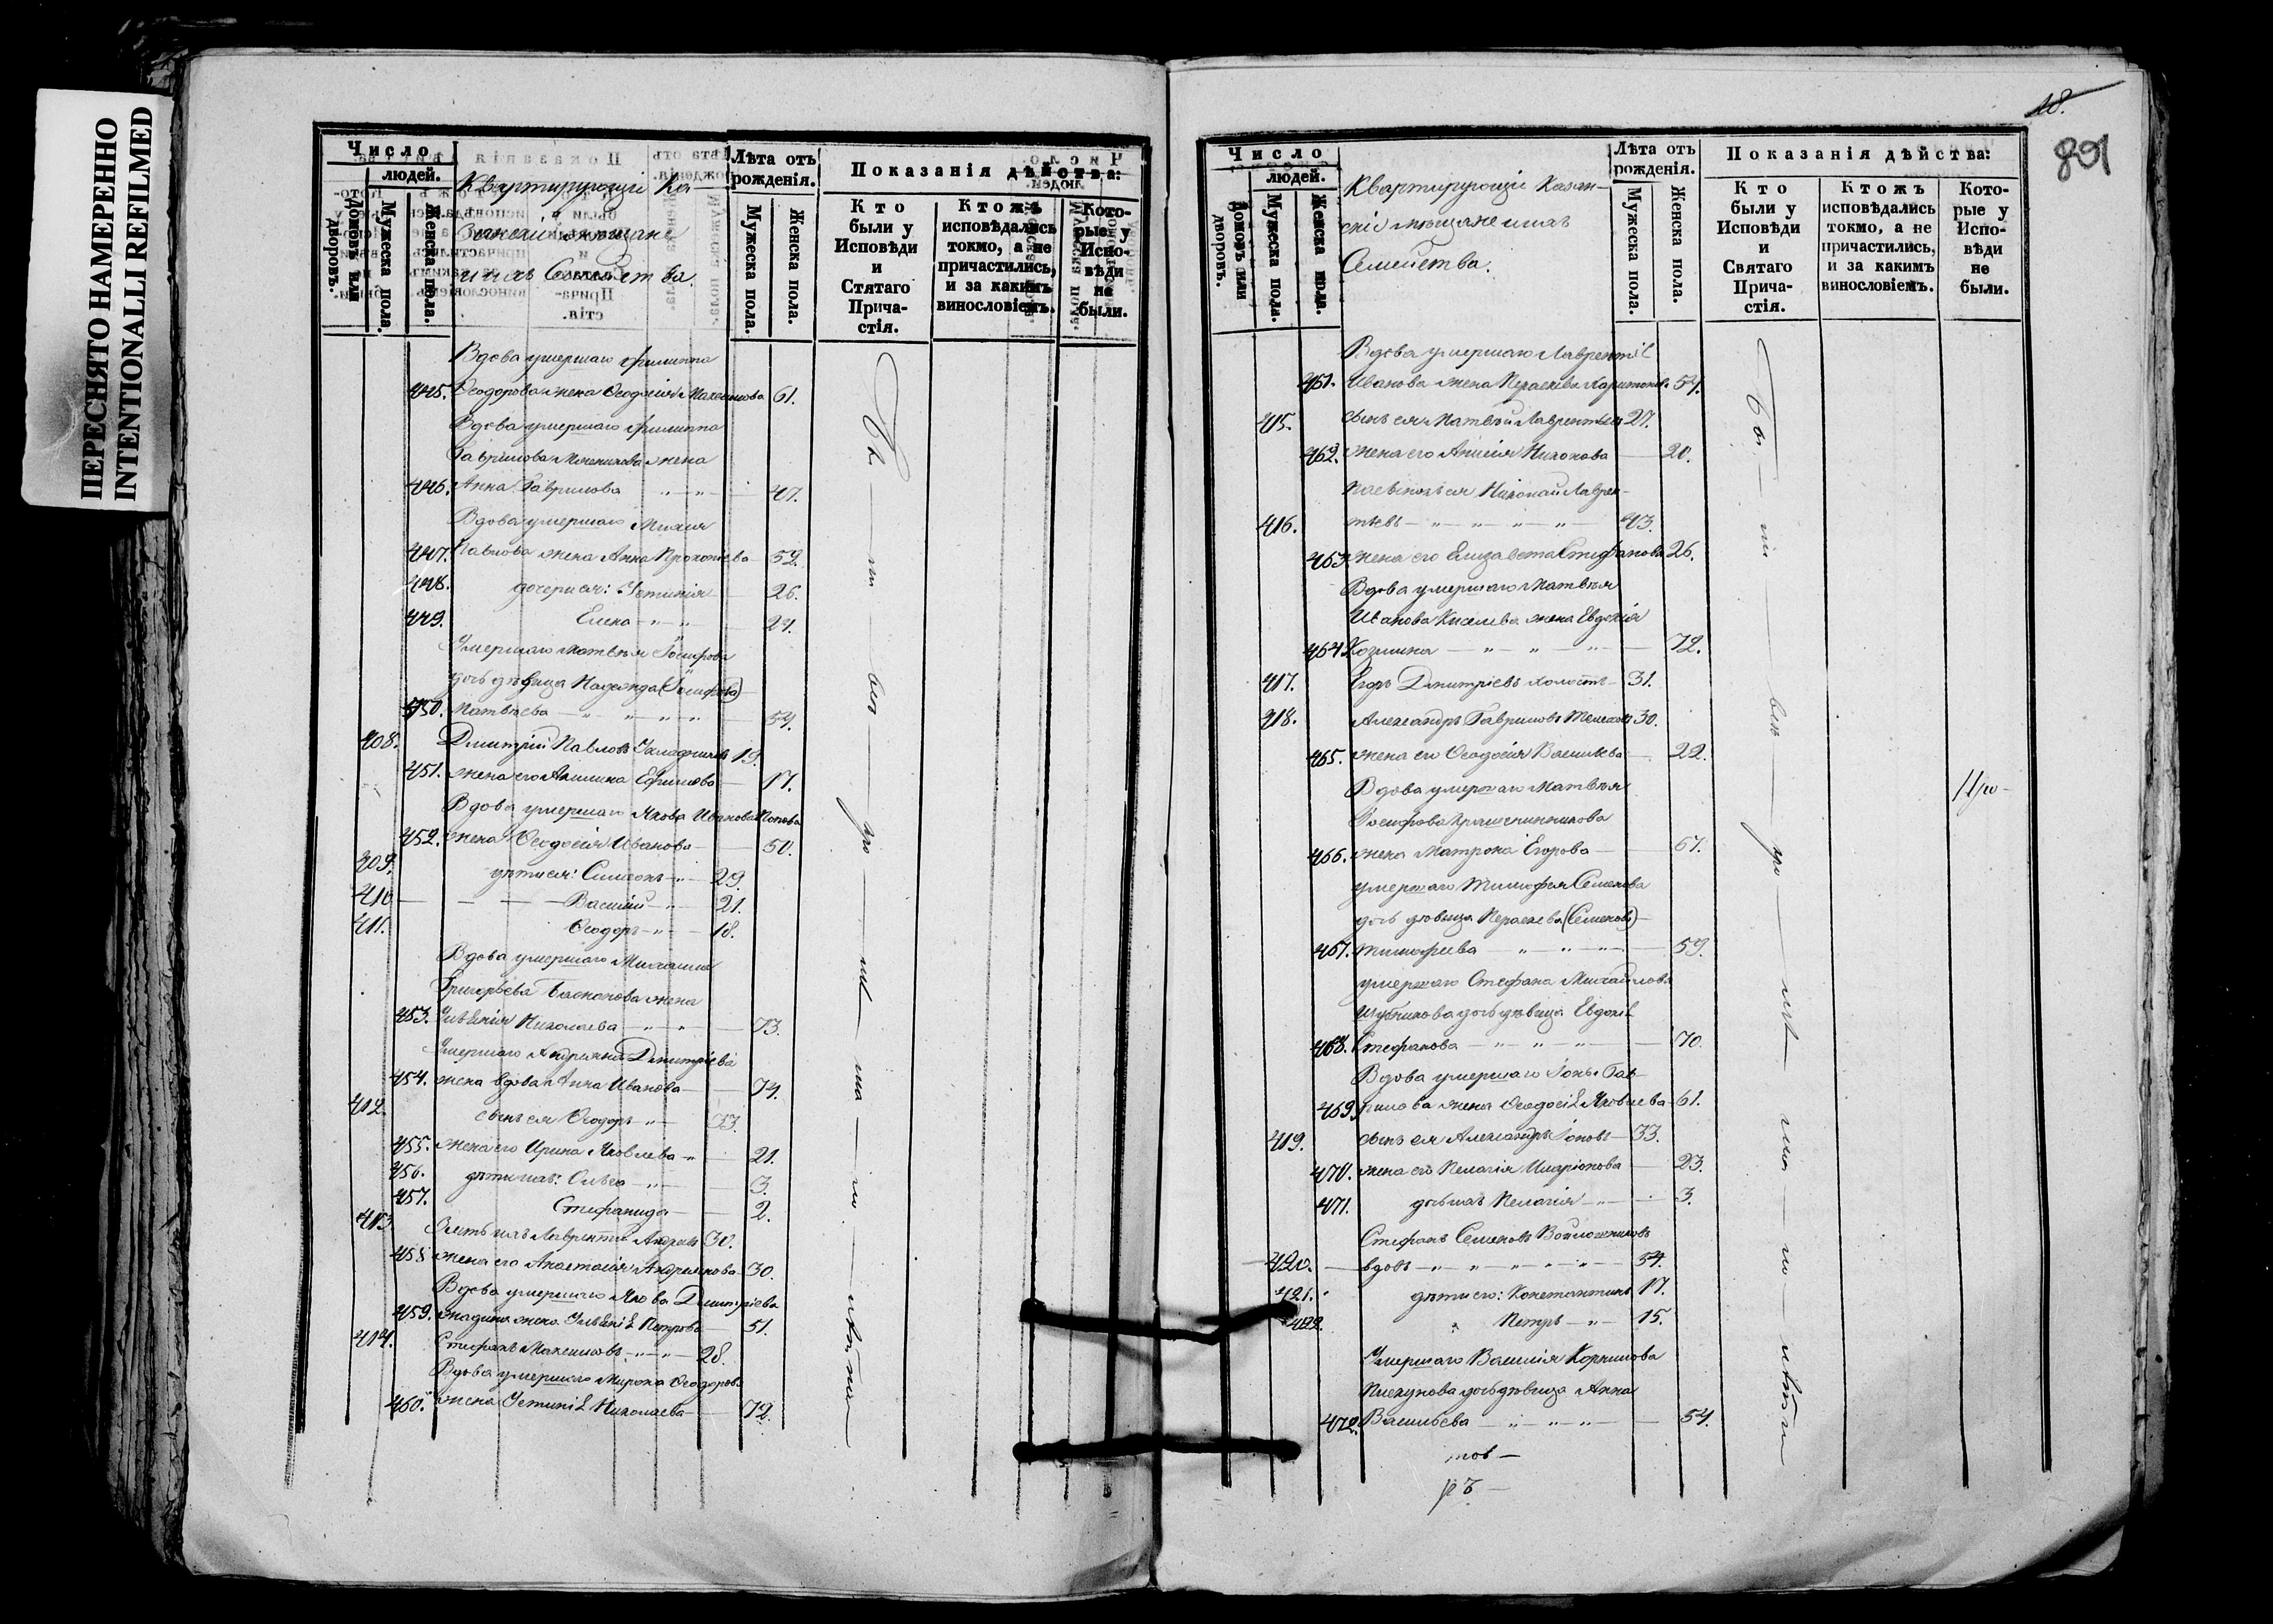 ПЕРЕСНЯТО НАМЕРЕННО
INTENTIONALLI REFILMED
Число
людей.
Домовъ или дворовъ.
Мужеска пола.
Женска пола.
Квартирующіе Ка-
занскіе мѣщане
и ихъ Семейства.
Лѣта отъ рожденія.
Мужеска пола.
Женска пола.
Показанія дѣйства:
Кто были у Исповѣди и Стятаго Прича-стія.
Ктожъ исповѣдались токмо, а не причастились, и за какимъ винословіемъ.
Кото-рые у Испо-вѣди не были.
Вдова умершаго Филиппа
445. Ѳеодорова жена Ѳеодосія Максимова 61.
Вдова умершаго Филиппа
Гаврилова жена
446. Анна Гаврилова 47.
Вдова умершаго
447. Павлова жена Анна Прокопіева 52.
448. дочери ея: Устинія 26.
449. Елена 24.
Умершаго Матвѣя Іосифова
дочь дѣвица Надежда (Іосифова)
450. Матвѣева 54.
408. Дмитрій Павловъ 19.
451. жена его Акилина Ефимова 17.
Вдова умершаго Якова Иванова Попова
452. жена Ѳеодосія Иванова 50.
409. дѣти ея: Симеонъ 29.
410 Василій 21.
411. Ѳеодоръ 18.
Вдова умершаго Михаила
Григорьева жена
453. Улѣянія Николаева 73.
Умершаго Андреяна Дмитріева
454. жена вдова Анна Иванова 74.
412. сынъ ея Ѳеодоръ 33.
455. жена его Ирина Яковлева 21.
456. дѣти ихъ: Ольга 3.
457. Стефанида 2.
413 Зять ихъ Лаврентій Андреевъ 30.
458 жена его Анастасія Андреянова 30.
Вдова умершаго Якова Дмитріева
459. жена Улѣянія Петрова 51.
414. Стефанъ Максимовъ 28.
Вдова умершаго Мирона Ѳеодорова
460. жена Устинія Николаева 72.
18.
801
Число
людей.
Домовъ или дворовъ.
Мужеска пола.
Женска пола.
Квартирующіе Казан-
скіе мѣщане и ихъ
Семейства.
Лѣта отъ рожденія.
Мужеска пола.
Женска пола.
Показанія дѣйства:
Кто были у Исповѣди и Святаго Прича-стія.
Ктожъ исповѣдались токмо, а не причастились, и за какимъ винословіемъ.
Кото-рые у Испо-вѣди не были.
Вдова умершаго Лаврентія
461. Иванова жена Параскева Харитонова 54.
415. сынъ ея Матвѣй Лаврентьевъ 27.
462. жена его Анисія Никонова 20.
Пасынокъ ея Николай Лаврен-
416. тьевъ 43.
463 жена его Елизавета Стефанова 26.
Вдова умершаго Матвѣя
Иванова Киселева жена Евдокія
464 Козмина 72.
417. Егоръ Дмитріевъ холостъ 31.
418. Александръ Гавриловъ 30.
465. жена его Ѳеодосія Васильева 22.
Вдова умершаго Матвѣя
Іосифова Крашенинникова
466. жена Матрона Егорова 67.
умершаго Тимофея Семенова
дочь дѣвица Параскева (Семенова)
467. Тимофеева 59.
умершаго Стефана Михайлова
Шубникова дочь дѣвица Евдокія
468. Стефанова 70.
Вдова умершаго Іоны Гав-
469. рилова жена Ѳеодосія Яковлева 61.
419. сынъ ея Александръ Іоновъ 33.
470. жена его Пелагія Иларіонова 23.
471. дочь ихъ Пелагія 3.
Стефанъ Семеновъ Войлошниковъ
420. вдовъ 54.
421. дѣти его: Константинъ 17.
422. Петръ 15.
Умершаго Василія Корнилова
Пискунова дочь дѣвица Анна
472. Васильева 54.